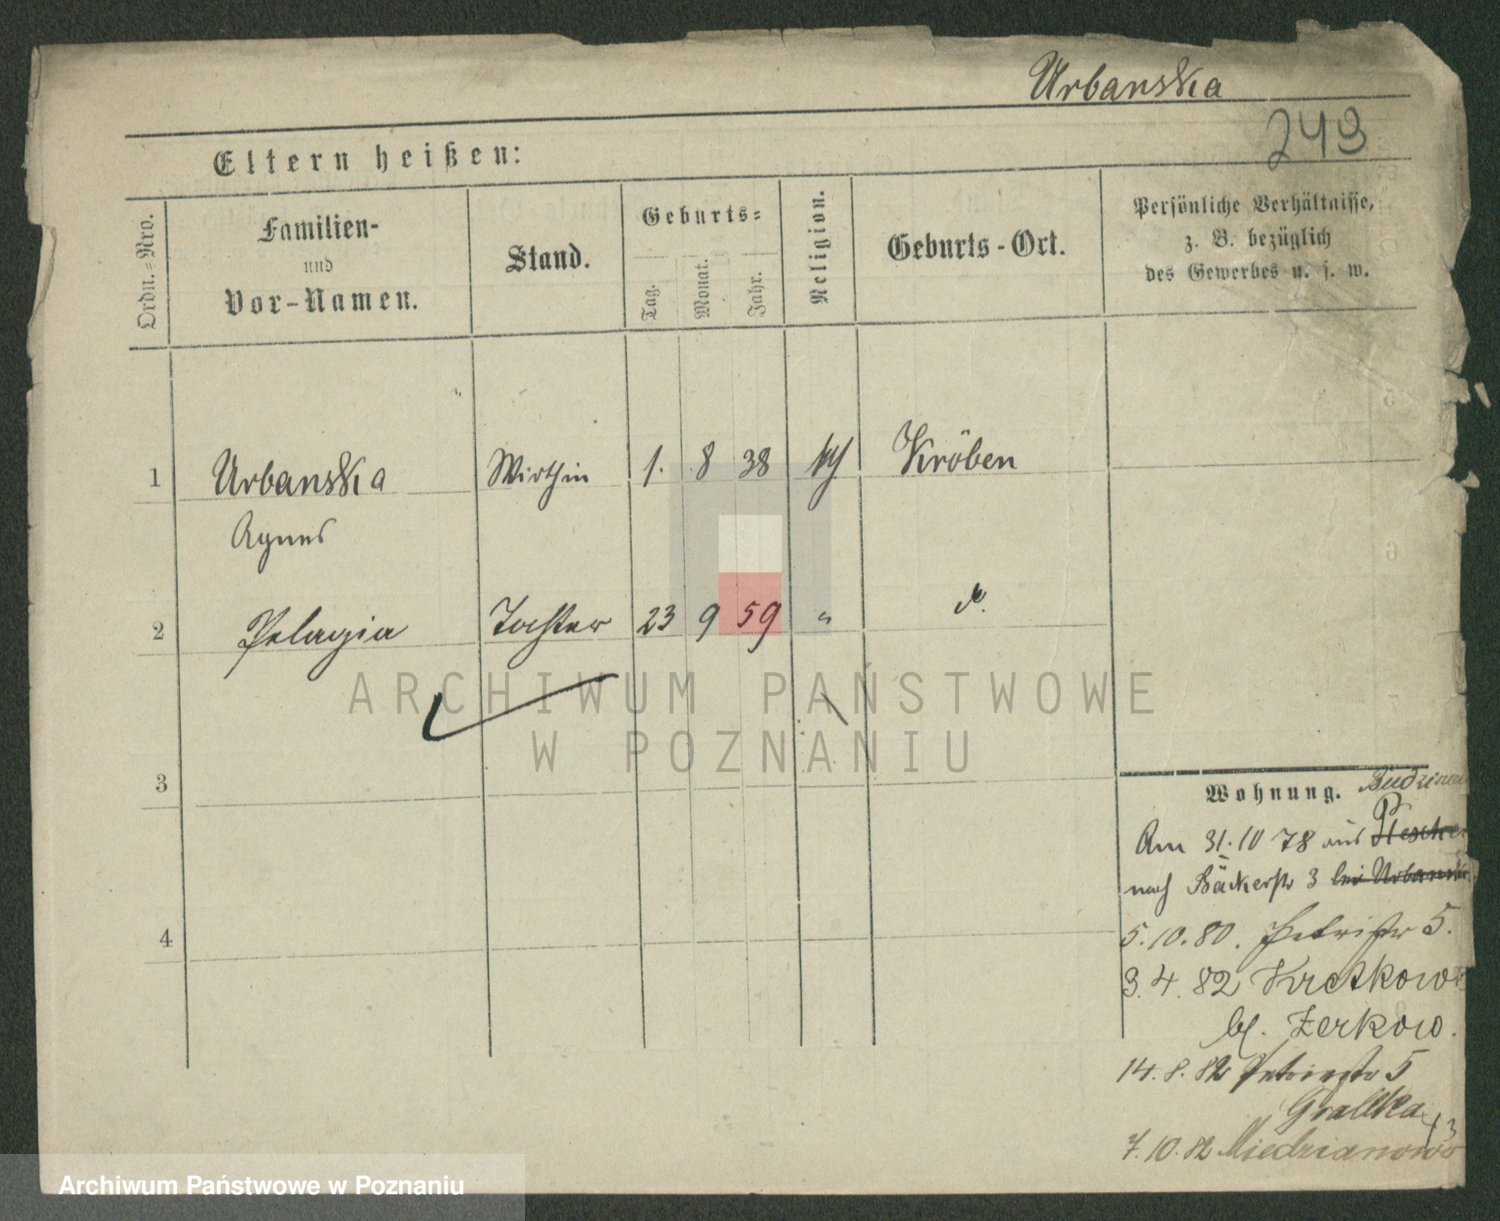 Urbanska
243
Eltern heißen:
Ordn.-Nro.
Familien-
und
Vor-Namen.
Stand.
Geburts-
Tag.
Monat.
Jahr.
Religion.
Geburts-Ort.
Persönliche Verhältnisse,
z. B. bezüglich
des Gewerbes u. s. w.
1 Urbanska Wirthin 1. 8 38 Kröben
Agnes
2 Pelagia Tochter 23 9 59 "
ARCHIWUM PAŃSTWOWE
W POZNANIU
3
4
Wohnung.
Am 31.10 78 aus
nach Bäckerstr 3 bei
5.10.80. Petristr 5.
3.4.82
bf. Zerkow.
14.8.82 Petristr 5
Grallka
7.10.82 Miedzianowo
Archiwum Państwowe w Poznaniu